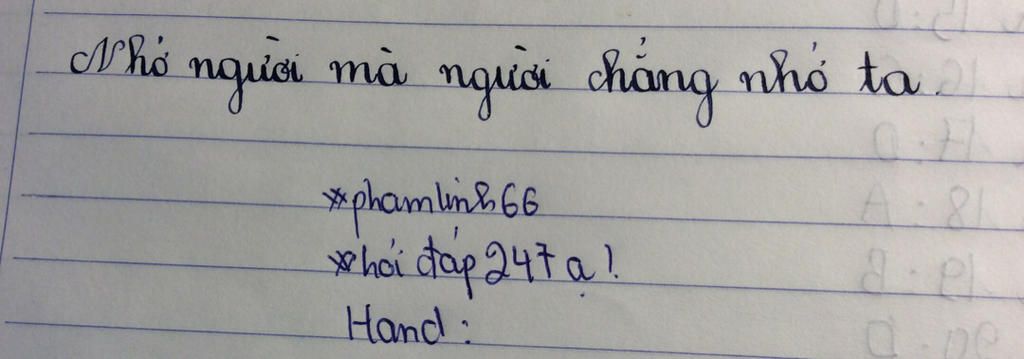 Nhớ người mà người chẳng nhớ ta.
*phamlinh66
*hỏi đáp 247 ạ!
Hand: